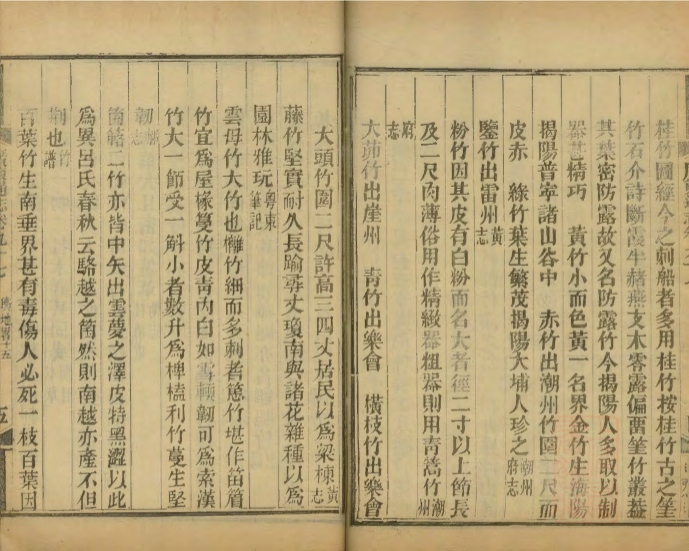 桂竹圖經今之刺船者多用桂竹按桂竹古之筀
竹石介詩斷霞半赭燕支木零露偏畱筀竹叢葢
其葉密防露故又名防露竹今揭陽人多取以制
器甚精巧　黄竹小而色黄一名界金竹生海陽
揭陽普寧諸山谷中　赤竹出潮州竹圍二尺而
皮赤　綠竹葉生繁茂揭陽大埔人珍之潮州府志
鑒竹出雷州黄志
粉竹因其皮有白粉而名大者徑二寸以上節長
及二尺肉薄俗用作精緻器粗器則用青蒿竹潮州
府志
大茆竹出崖州　青竹出樂會　橫枝竹出樂會
大頭竹圍二尺許高三四丈居民以爲梁棟黃志
藤竹堅實耐久長踰尋丈瓊南與諸花雜種以爲
園林雅玩粤東筆記
雲母竹大竹也雛竹細而多刺者慈竹堪作笛篃
竹宜爲屋椽䈏竹皮青内白如雪輭韌可爲索漢
竹大一節受一斛小者數升爲椑榼利竹蔓生堅
韌
筋簵二竹亦皆中矢出雲夢之澤皮特黑澀以此
爲異呂氏春秋云駱越之箘然則南越亦產不但
荆也竹譜
百葉竹生南垂界甚有毒傷人必死一枝百葉因